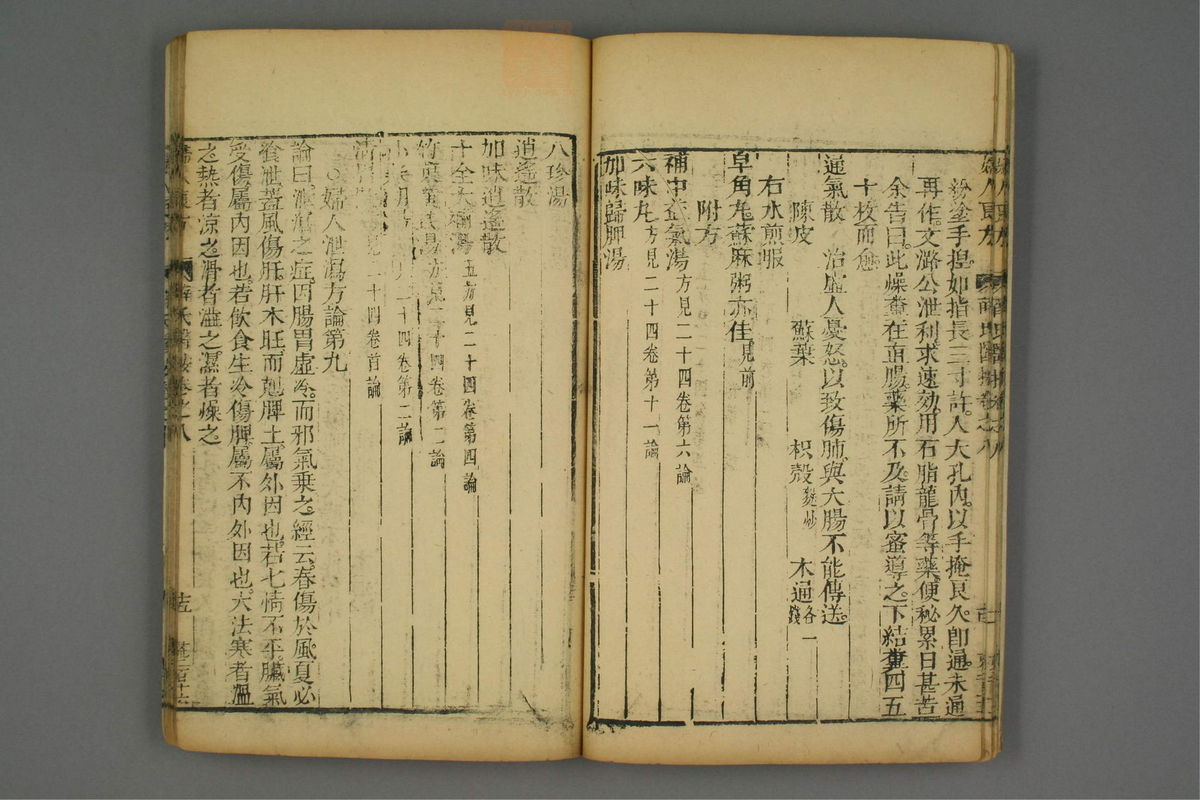 粉塗手捏如指長三寸許人大孔內以手掩良久卽通未通
再作文潞公泄利求速効用石脂龍骨等藥便秘累日甚苦
余告曰此燥糞在直腸藥所不及請以蜜導之下結糞四五
十枚而愈
通氣散 治虛人憂怒以致傷肺與大腸不能傳送
陳皮 蘇葉 枳殻麩炒 木通各一錢
右水煎服
皁角丸蘇麻粥亦佳見前
附方
補中益氣湯方見二十四卷第六論
六味丸方見二十四卷第十一論
加味歸脾湯
八珍湯
逍遙散
加味逍遙散
十全大補湯五方見二十四卷第四論
二十四卷第二論
二十四卷第二論
二十四卷首論
婦人泄瀉方論第九
論曰泄瀉之症因腸胃虛冷而邪氣乗之經云春傷於風夏必
飱泄蓋風傷肝肝木旺而尅脾土屬外因也若七情不平臟氣
受傷屬內因也若飲食生冷傷脾屬不內外因也大法寒者溫
之熱者凉之滑者澁之濕者燥之
薛氏醫按卷之八